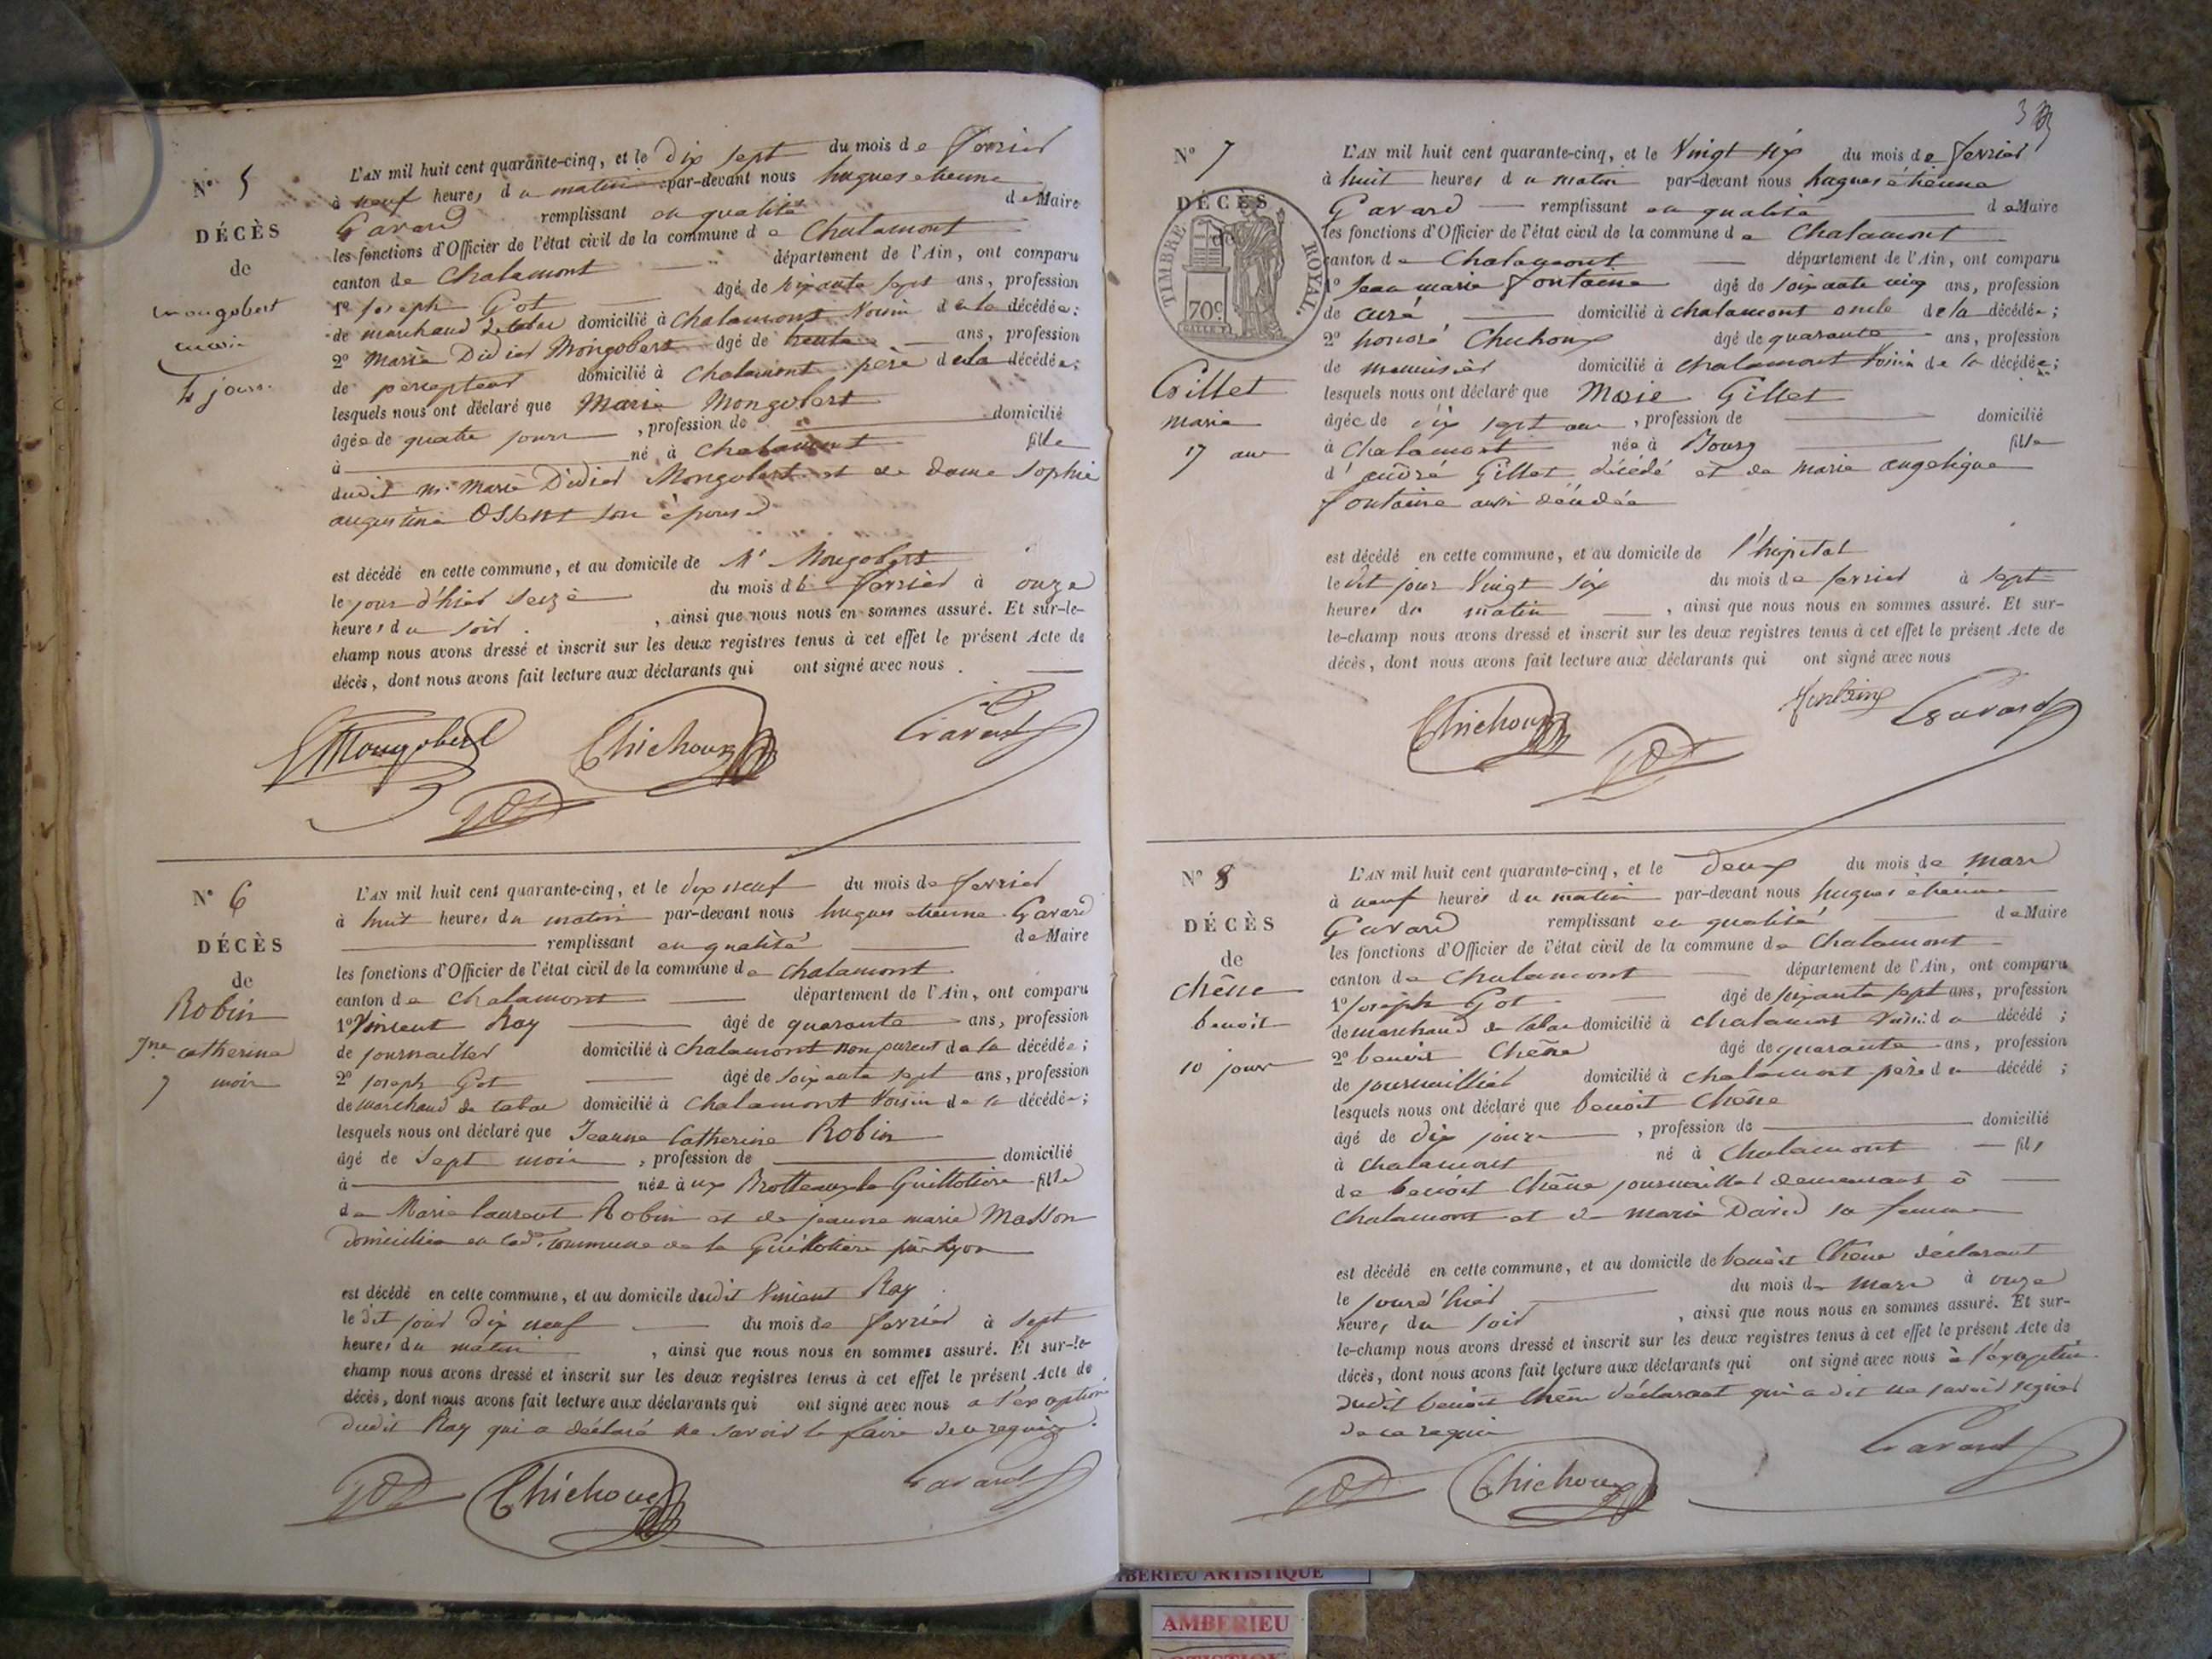 N° 5
DÉCÈS
de
Mongobert
marie
4 jours
L'AN mil huit cent quarante-cinq, et le dix sept du mois de fevrier
à neuf heures du matin par-devant nous hugues etienne
Gavard remplissant en qualité de Maire
les fonctions d'Officier de l'état civil de la commune de Chalamont
canton de Chalamont département de l'Ain, ont comparu
1° joseph Got âgé de soixante sept ans, profession
de marchand de tabac domicilié à Chalamont Voisin de la décédée;
2° Marie Didier Mongobert âgé de trente ans, profession
de percepteur domicilié à Chalamont père de la décédée;
lesquels nous ont déclaré que Marie Mongobert
âgée de quatre jours, profession de domicilié
à né à Chalamont fille
dudit Mr Marie Didier Mongobert et de Dame Sophie
augustine son épouse
est décédé en cette commune, et au domicile de Mr Mongobert
le jour d'hier seize du mois de fevrier à onze
heures du soir, ainsi que nous nous en sommes assuré. Et sur-le-
champ nous avons dressé et inscrit sur les deux registres tenus à cet effet le présent Acte de
décès, dont nous avons fait lecture aux déclarants qui ont signé avec nous.
Mongobert Chichoux Gavard
Got
N° 6
DÉCÈS
de
Robin
Jne catherine
7 mois
L'AN mil huit cent quarante-cinq, et le dix neuf du mois de fevrier
à huit heures du matin par-devant nous hugues etienne Gavard
remplissant en qualité de Maire
les fonctions d'Officier de l'état civil de la commune de Chalamont
canton de Chalamont département de l'Ain, ont comparu
1° Vincent Ray âgé de quarante ans, profession
de journailler domicilié à Chalamont non parent de la décédée;
2° joseph Got âgé de soixante sept ans, profession
de marchand de tabac domicilié à Chalamont Voisin de la décédée;
lesquels nous ont déclaré que Jeanne Catherine Robin
âgé de sept mois, profession de domicilié
à née aux Brotteaux la Guillotière fille
de Marie laurent Robin et de jeanne marie Masson
domiciliés en lad. commune de la Guillotiere près Lyon
est décédé en cette commune, et au domicile dudit Vincent Ray
le dit jour dix neuf du mois de fevrier à sept
heures du matin, ainsi que nous nous en sommes assuré. Et sur-le-
champ nous avons dressé et inscrit sur les deux registres tenus à cet effet le présent Acte de
décès, dont nous avons fait lecture aux déclarants qui ont signé avec nous a l'exception
dudit Ray qui a déclaré ne savoir le faire de ce requis.
Got Chichoux Gavard
N° 7
DÉCÈS
de
TIMBRE ROYAL.
70c
Gillet
marie
17 ans
L'AN mil huit cent quarante-cinq, et le Vingt six du mois de fevrier
à huit heures du matin par-devant nous hugues étienne
Gavard remplissant en qualité de Maire
les fonctions d'Officier de l'état civil de la commune de Chalamont
canton de Chalamont département de l'Ain, ont comparu
1° Jean marie fontaine âgé de soixante cinq ans, profession
de curé domicilié à chalamont oncle de la décédée;
2° honoré Chichoux âgé de quarante ans, profession
de menuisier domicilié à chalamont Voisin de la décédée;
lesquels nous ont déclaré que Marie Gillet
âgée de dix sept ans, profession de domicilié
à Chalamont née à Bourg fille
d'andré Gillet décédé et de marie angelique
fontaine aussi décédée
est décédé en cette commune, et au domicile de l'hopital
le dit jour Vingt six du mois de fevrier à sept
heures du matin, ainsi que nous nous en sommes assuré. Et sur-
le-champ nous avons dressé et inscrit sur les deux registres tenus à cet effet le présent Acte de
décès, dont nous avons fait lecture aux déclarants qui ont signé avec nous
Chichoux Got Fontaine Gavard
N° 8
DÉCÈS
de
Chêne
benoit
10 jours
L'AN mil huit cent quarante-cinq, et le Deux du mois de mars
à neuf heures du matin par-devant nous hugues étienne
Gavard remplissant en qualité de Maire
les fonctions d'Officier de l'état civil de la commune de Chalamont
canton de Chalamont département de l'Ain, ont comparu
1° joseph Got âgé de soixante sept ans, profession
de marchand de tabac domicilié à chalamont voisin du décédé;
2° benoit Chêne âgé de quarante ans, profession
de journaillier domicilié à chalamont père du décédé;
lesquels nous ont déclaré que benoit Chêne
âgé de dix jours, profession de domicilié
à Chalamont né à Chalamont fils
de benoit Chêne journaillier demeurant à
Chalamont et de marie David sa femme
est décédé en cette commune, et au domicile de benoit Chêne déclarant
le jour d'hier du mois de mars à onze
heures du soir, ainsi que nous nous en sommes assuré. Et sur-
le-champ nous avons dressé et inscrit sur les deux registres tenus à cet effet le présent Acte de
décès, dont nous avons fait lecture aux déclarants qui ont signé avec nous à l'exception
dudit benoit Chêne déclarant qui a dit ne savoir signer
de ce requis
Got Chichoux Gavard
AMBERIEU ARTISTIQUE
AMBERIEU